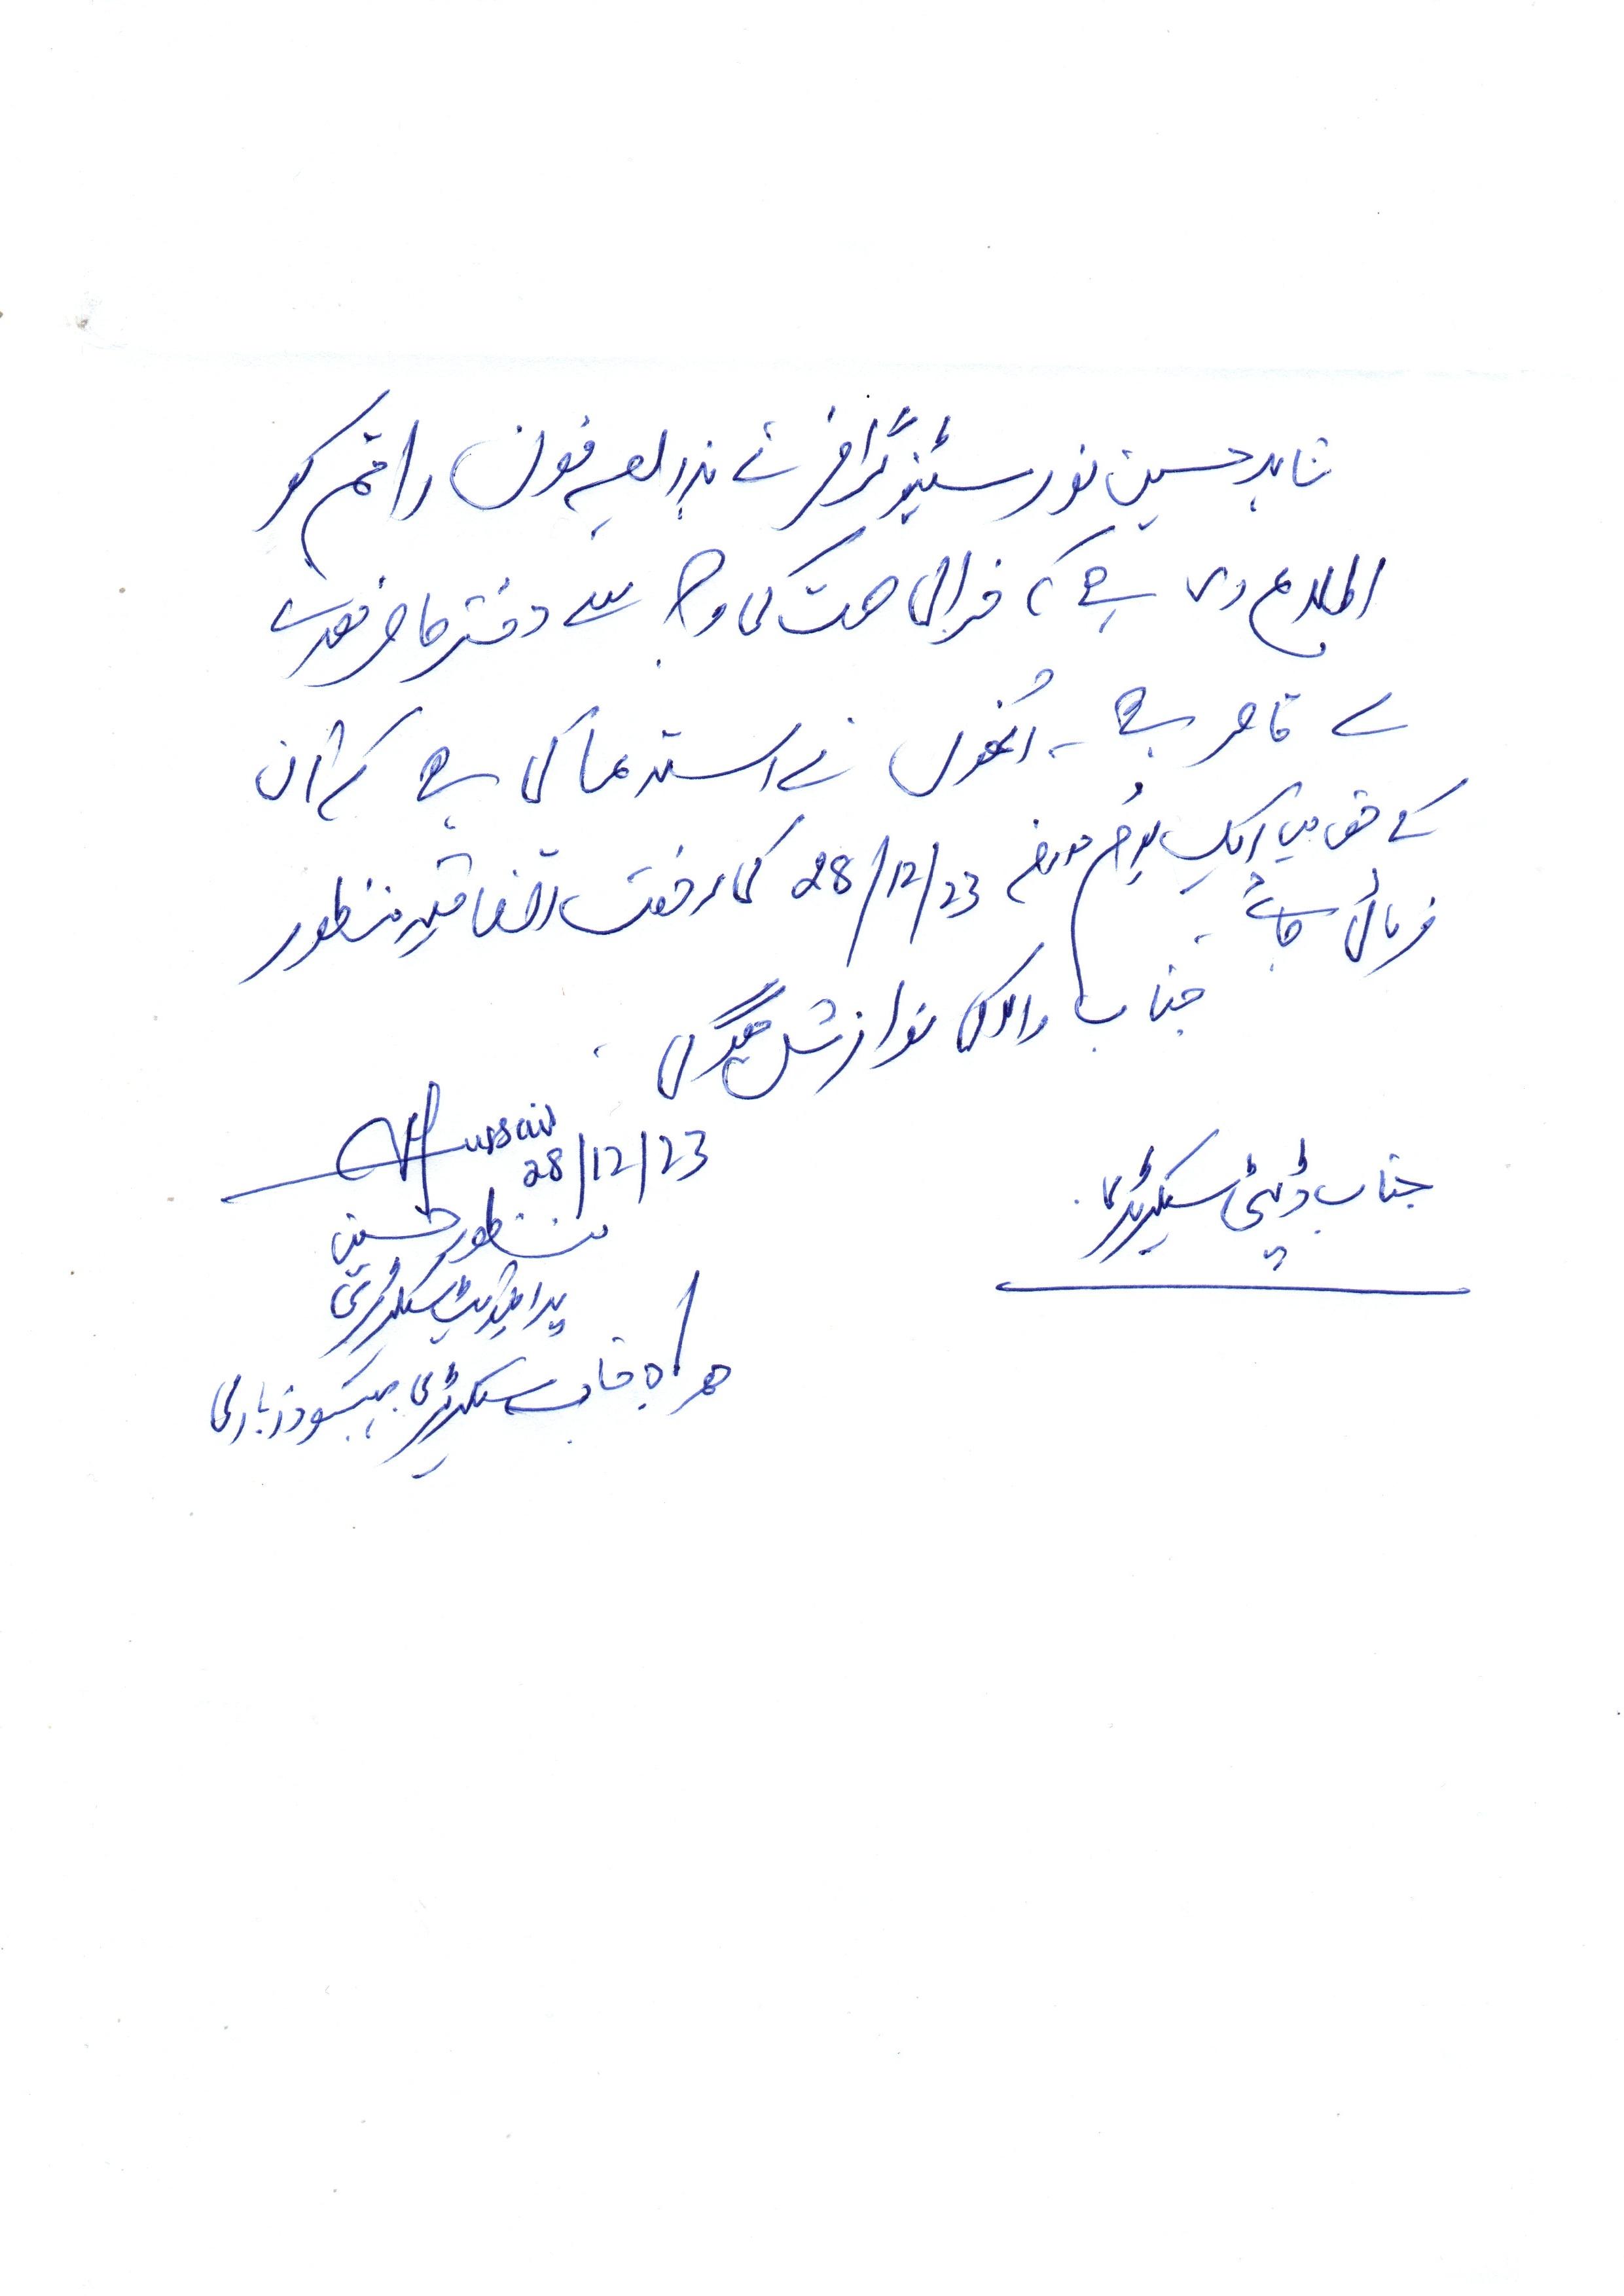 شاہد حسین نور سٹینوگرافر نے بذریعہ فون راقم کو
اطلاع دی ہے کہ خرابی صحت کی وجہ سے دفتر حاضر ہونے
سے قاصر ہے۔ اُنھوں نے استدعا کی ہے کہ اُن
کے حق میں ایک یوم مورخہ 28/12/23 کی رخصت اتفاقیہ منظور
فرمائی جائے۔
جناب والا کی نوازش ہوگی۔
Hussain
28/12/23
منظور حسین
پرائیویٹ سیکرٹری
ہمراہ جناب سیکرٹری
جناب ڈپٹی سیکرٹری۔